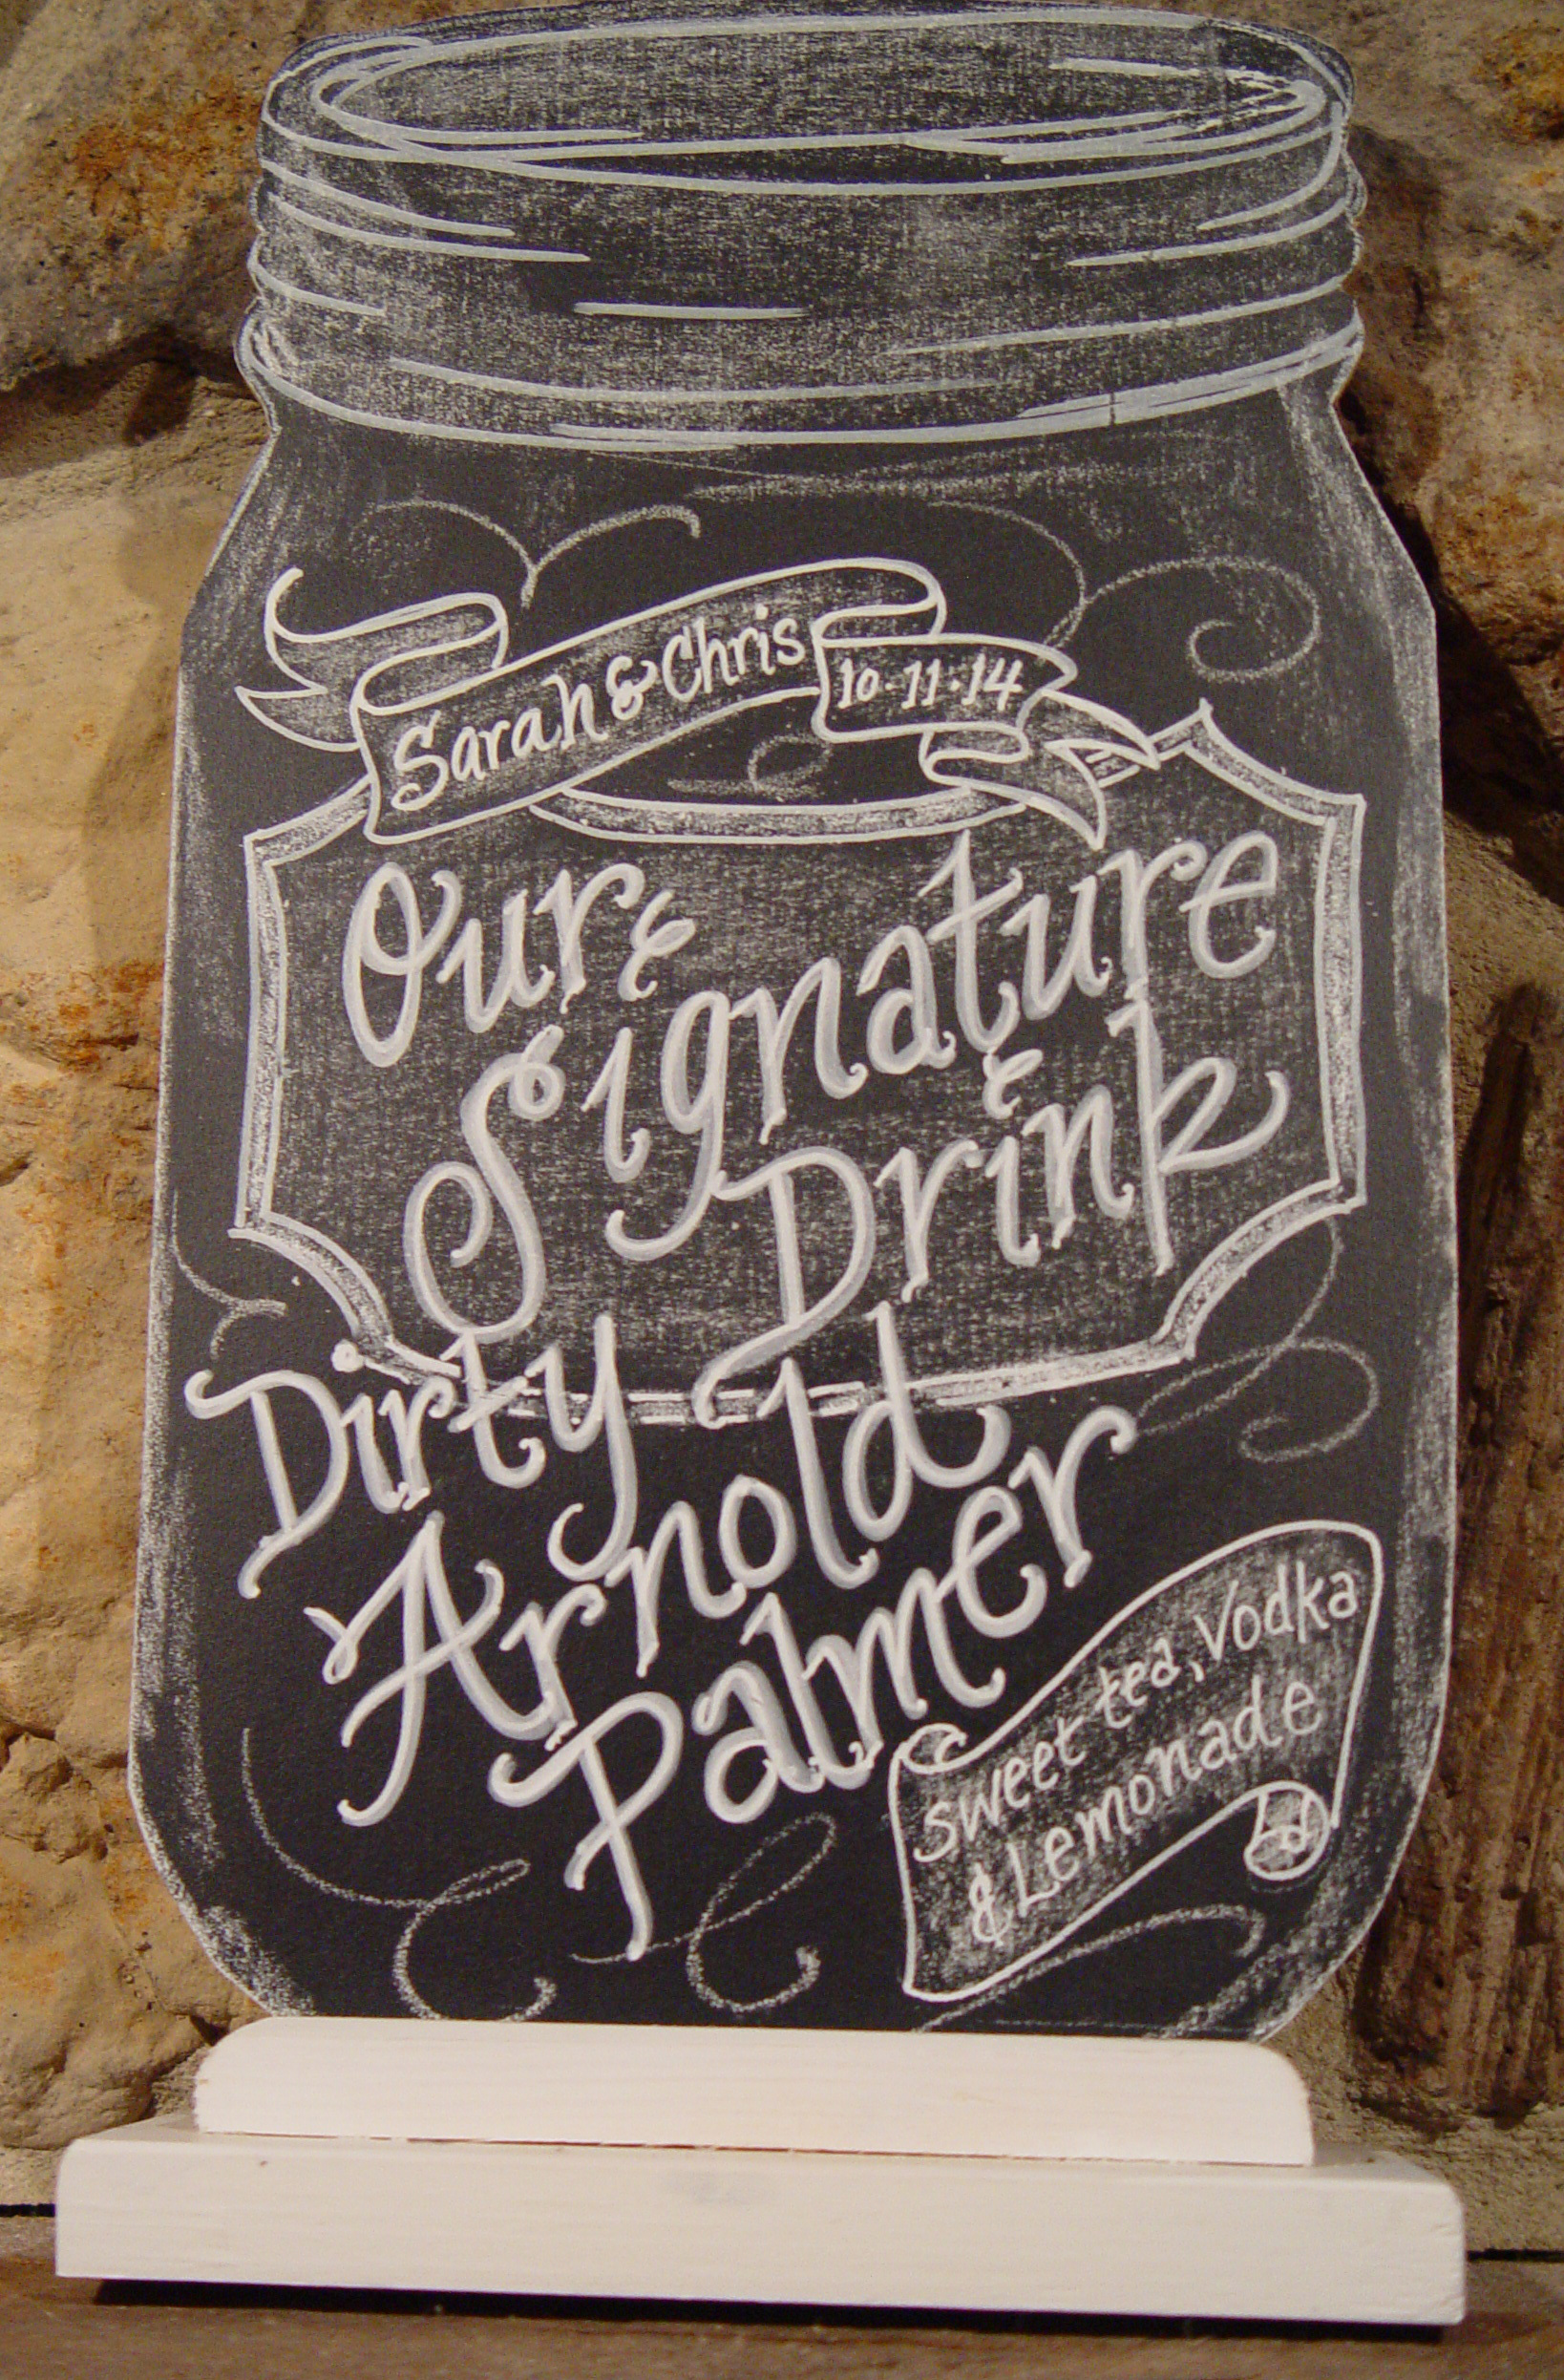 Sarah & Chris
10·11·14
Our
Signature
Drink
Dirty
Arnold
Palmer
sweet tea, Vodka
& Lemonade